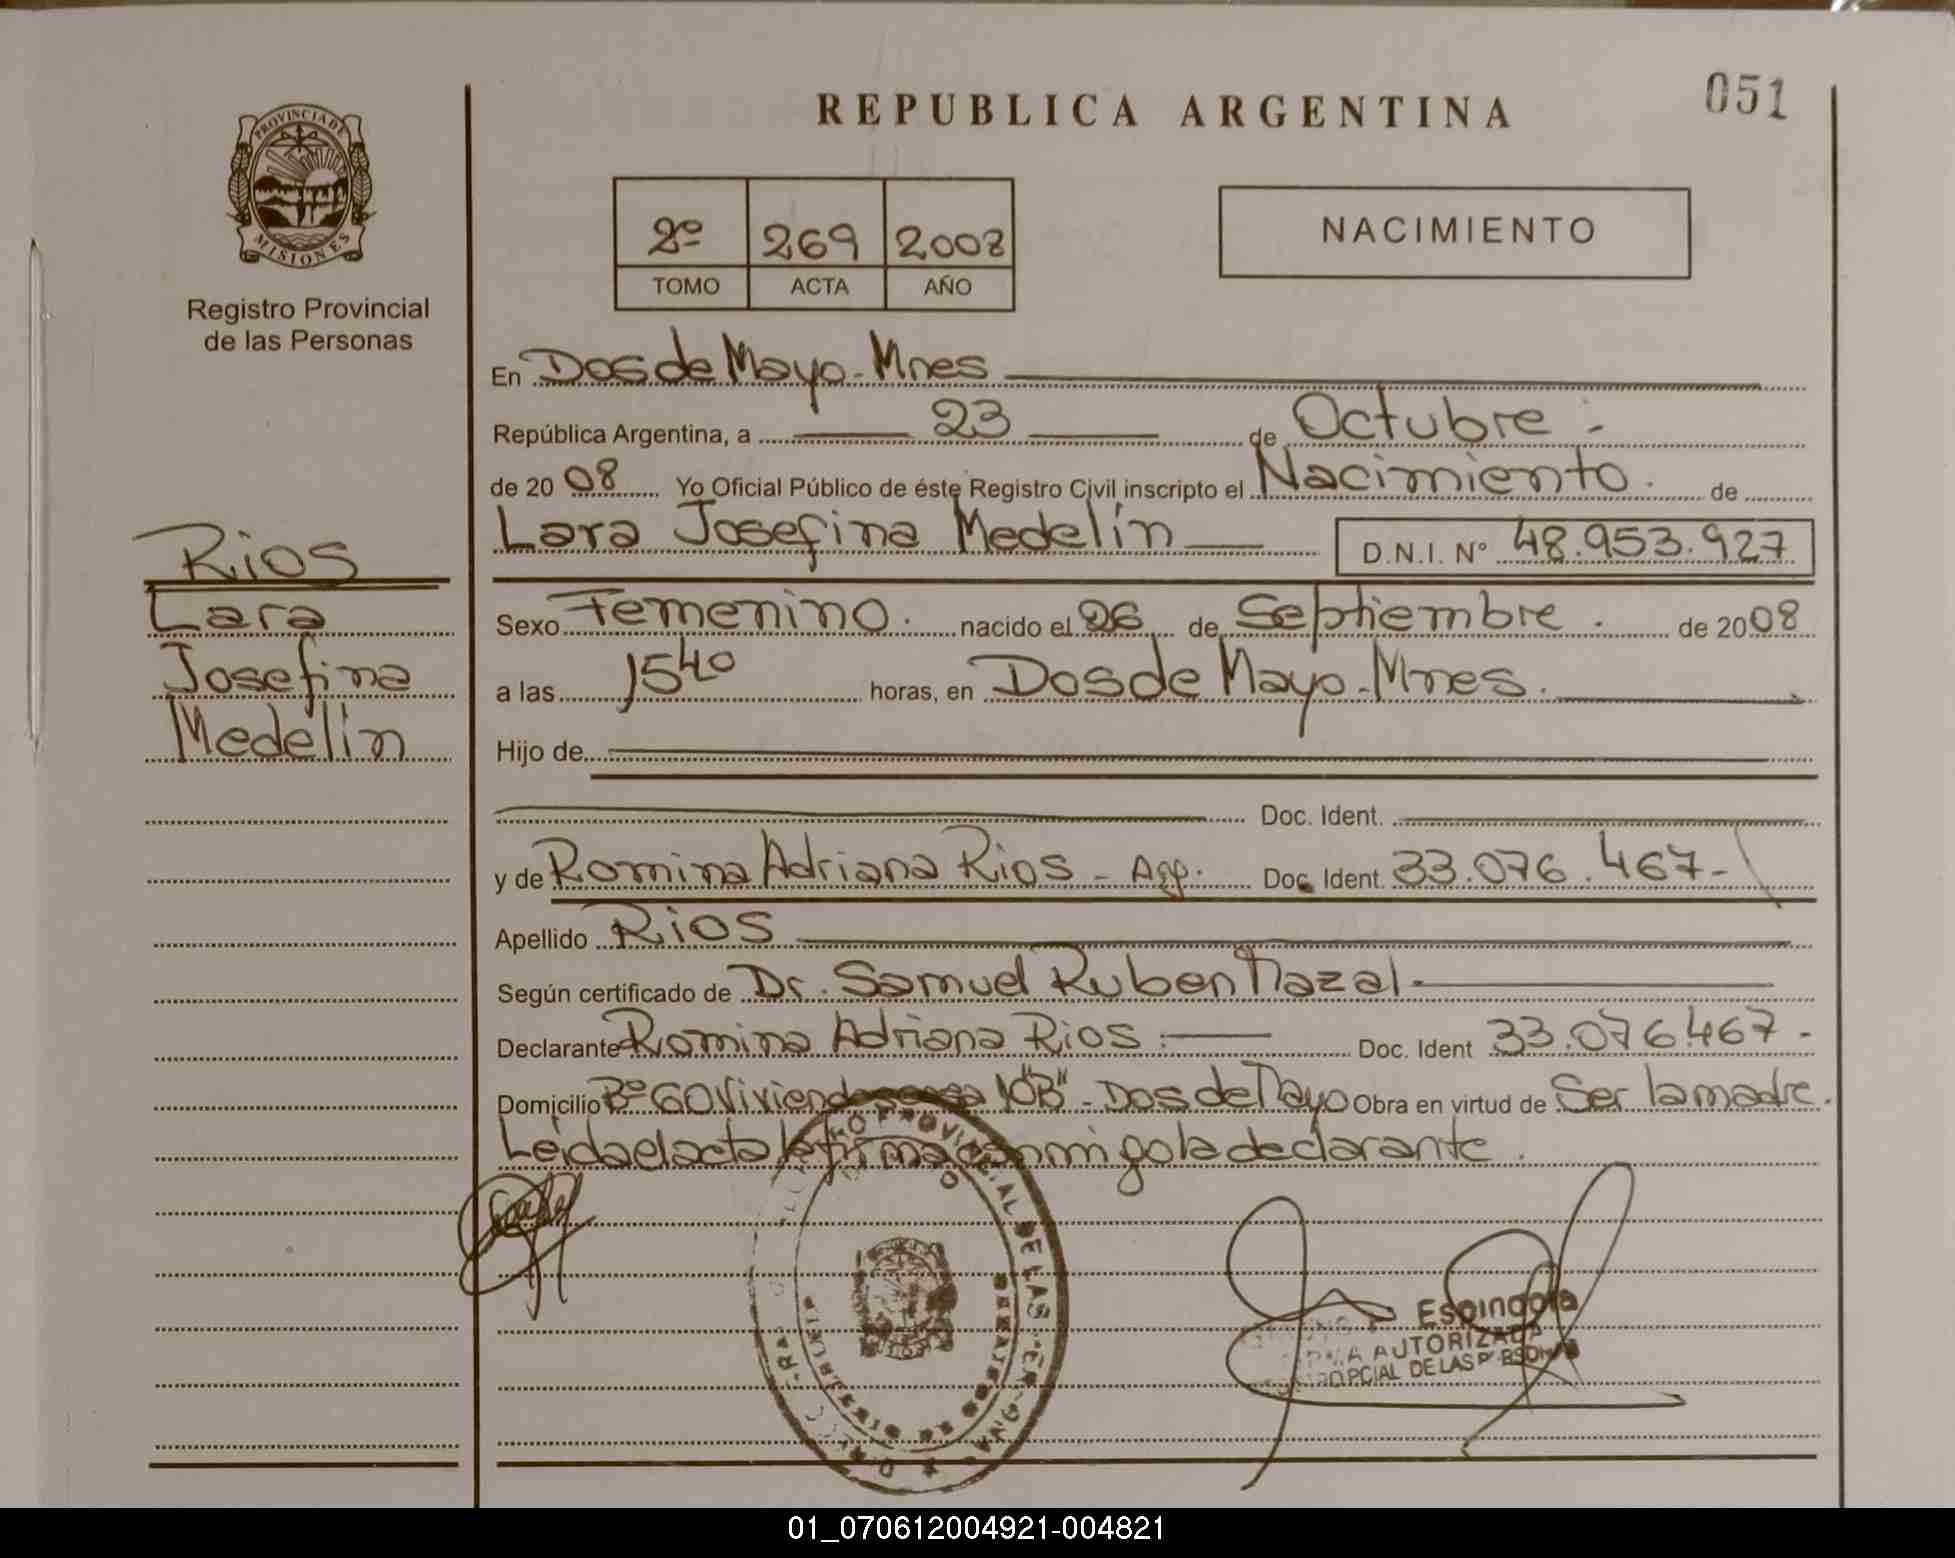 REPUBLICA ARGENTINA
051
PROVINCIA DE
MISIONES
Registro Provincial
de las Personas
2º 269 2008
TOMO ACTA AÑO
NACIMIENTO
En Dos de Mayo - Mnes
República Argentina, a 23 de Octubre -
de 20 08 Yo Oficial Público de éste Registro Civil inscripto el Nacimiento. de
Lara Josefina Medelín D.N.I. Nº 48.953.927
Rios
Lara
Josefina
Medelín
Sexo Femenino. nacido el 26 de Septiembre. de 20 08
a las 15 40 horas, en Dos de Mayo - Mnes.
Hijo de
Doc. Ident.
y de Romina Adriana Rios - Arg. Doc. Ident. 33.076.467-
Apellido Rios
Según certificado de Dr. Samuel Ruben Nazal -
Declarante Romina Adriana Rios. Doc. Ident 33.076.467-
Domicilio Bº 60 Viviendas casa 10 "B" - Dos de Mayo Obra en virtud de Ser la madre.
Leída el acta la firma conmigo la declarante.
PROVINCIAL DE LAS
Espindola
AUTORIZADA
DE LAS
01_070612004921-004821